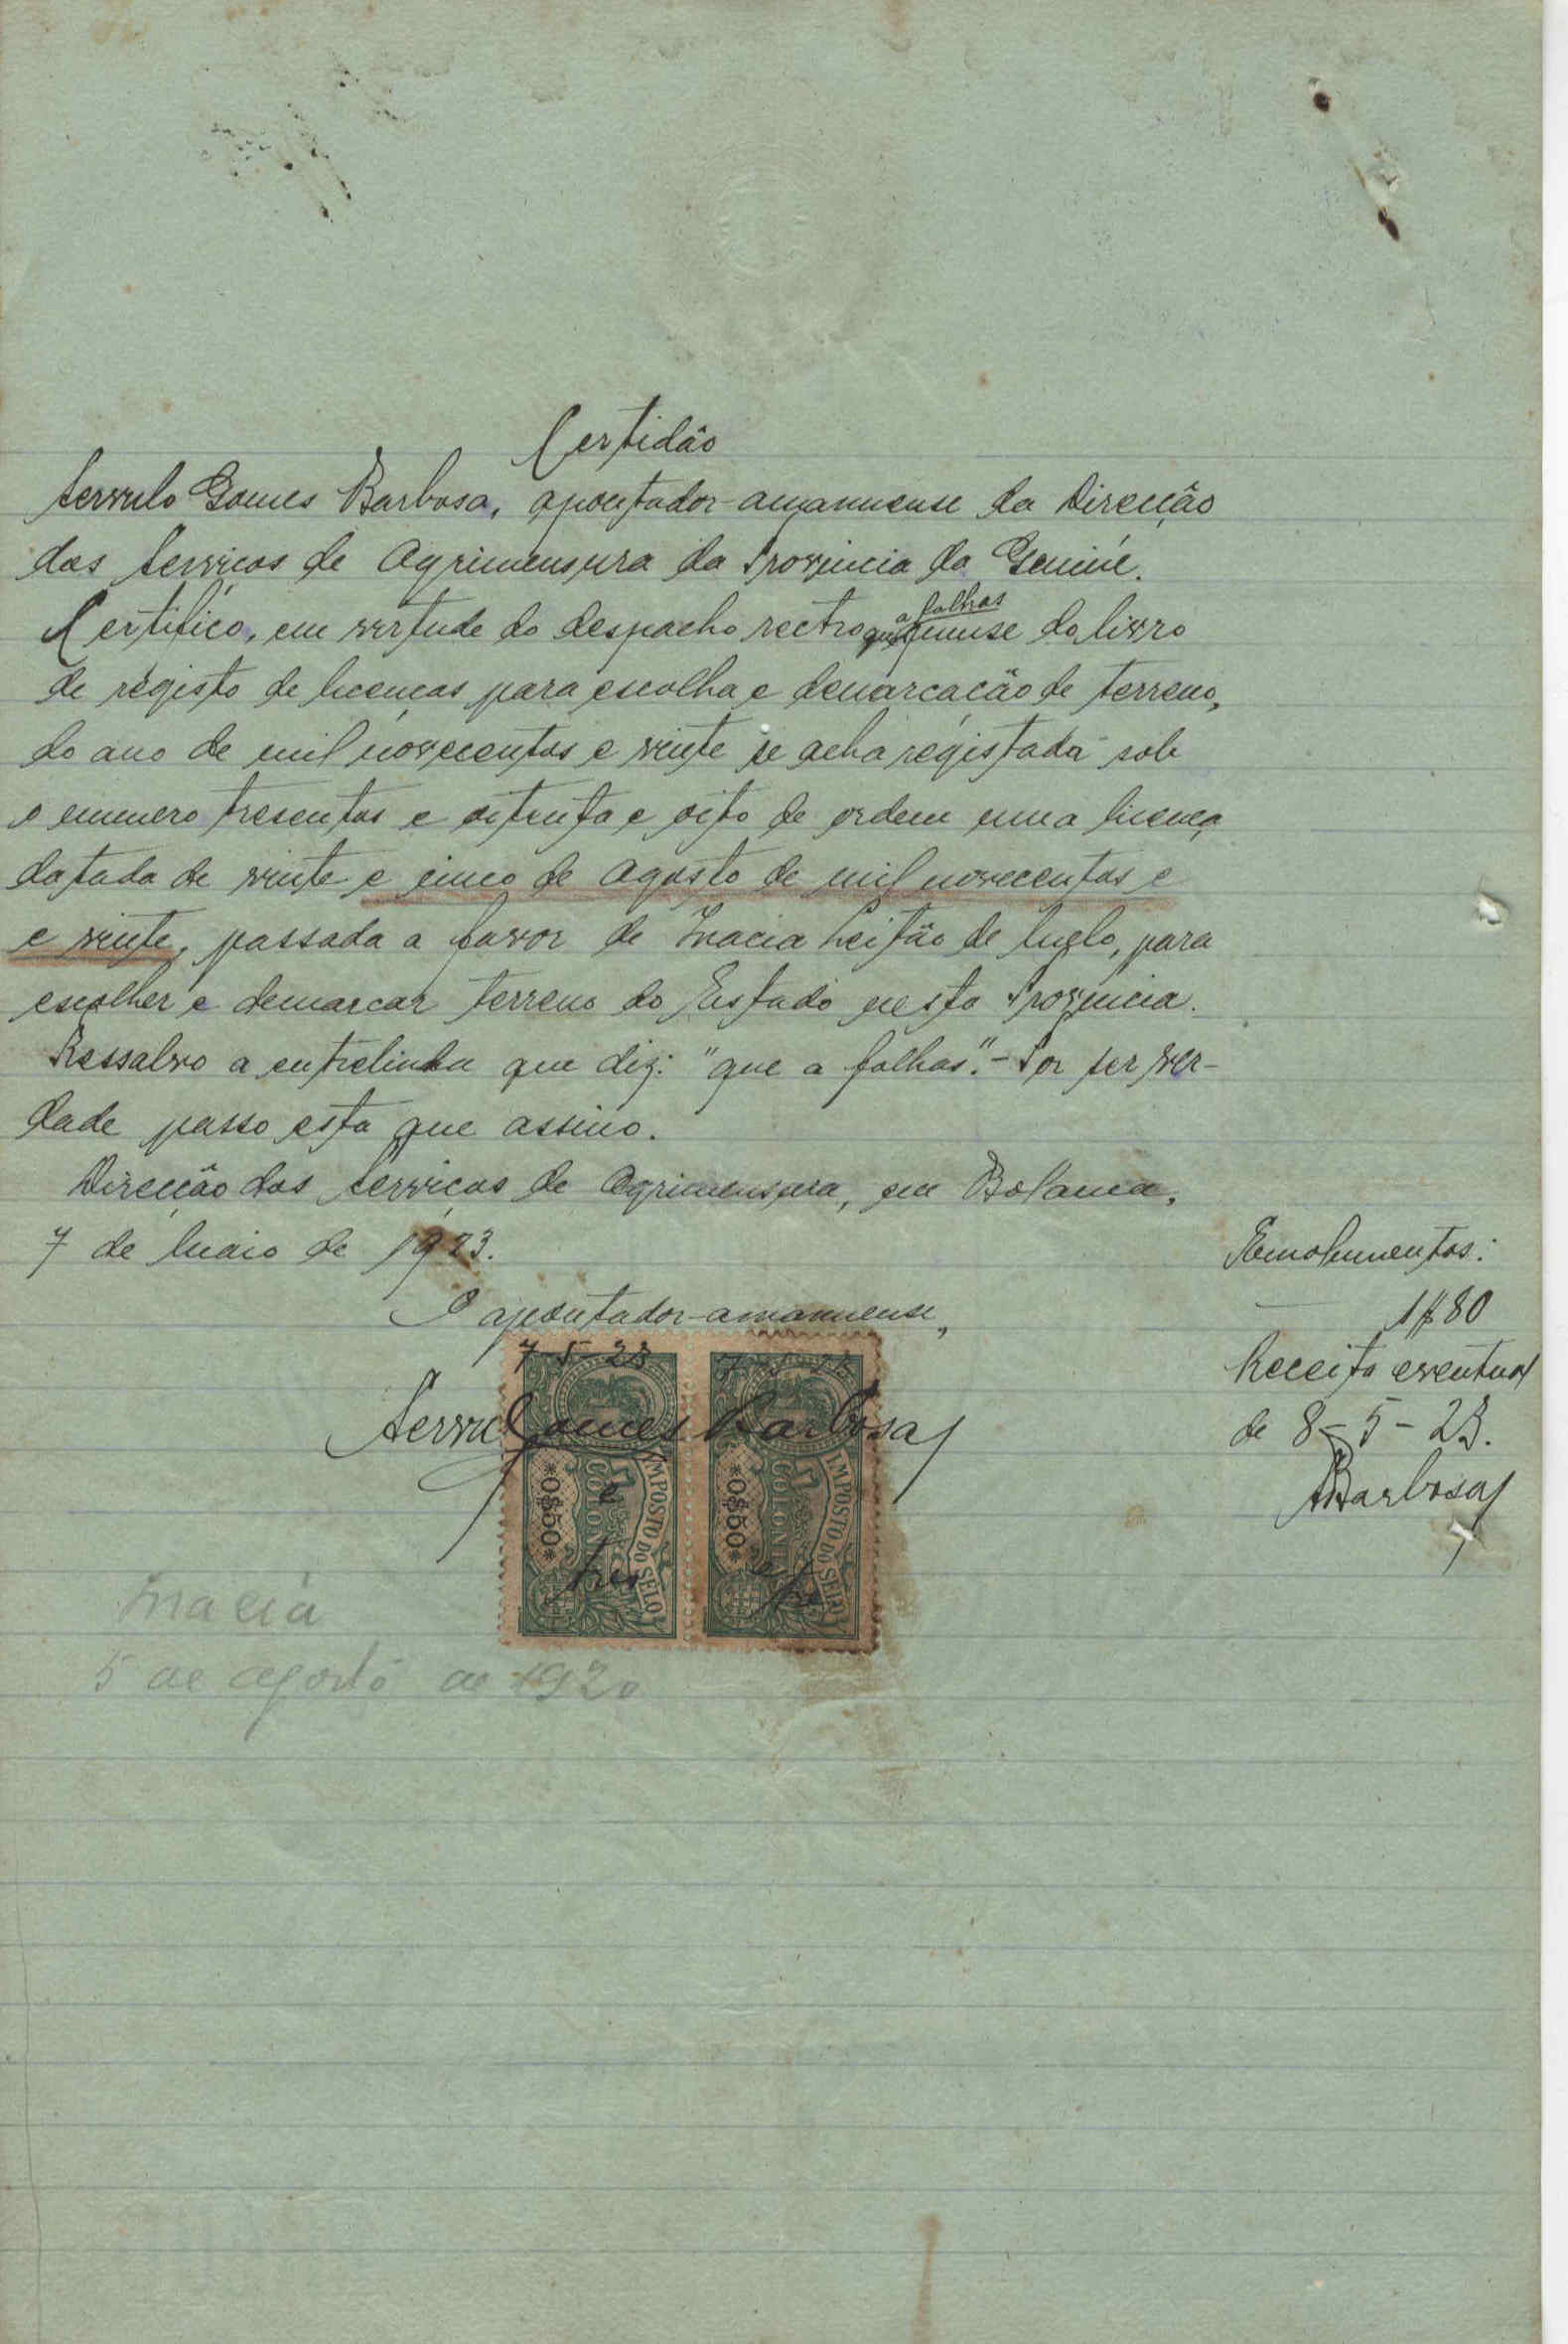 Certidão
Servulo Gomes Barbosa, apontador-amanuense da Direcção
dos Serviços de Agrimensura da Provincia da Guiné.
Certifico, em virtude do despacho rectro que a folhas quinse do livro
de régisto de licenças para escolha e demarcação de terreno,
do ano de mil novecentos e vinte se acha régistada sob
o numero tresentos e oitenta e oito de ordem uma licença
datada de vinte e cinco de Agosto de mil novecentos e
e vinte, passada a favor de Inacia Leitão de Melo, para
escolher e demarcar terreno do Estado nesta Provincia.
Ressalvo a entrelinha que diz: "que a folhas". - Por ser ver-
dade passo esta que assino.
Direcção dos Serviços de Agrimensura, em Bolama,
7 de Maio de 1923.
O apontador-amanuense,
7-5-23 7-5-23
Servulo Gomes Barbosa
IMPOSTO DO SELO
COLONIA
*0$50*
IMPOSTO DO SELO
COLONIA
*0$50*
Emolumentos:
1$80
Receita eventual
de 8-5-23.
Barbosa
Inacia
5 de agosto de 1920